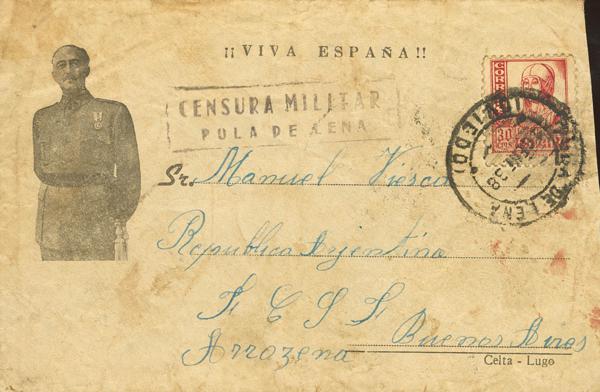 ¡¡VIVA ESPAÑA!!
CENSURA MILITAR
POLA DE LENA
CORREOS
30
Sr. Manuel Viesca
POLA DE LENA (OVIEDO)
Republica Arjentina
F C S S
Buenos Aires
Arrozena
Celta - Lugo